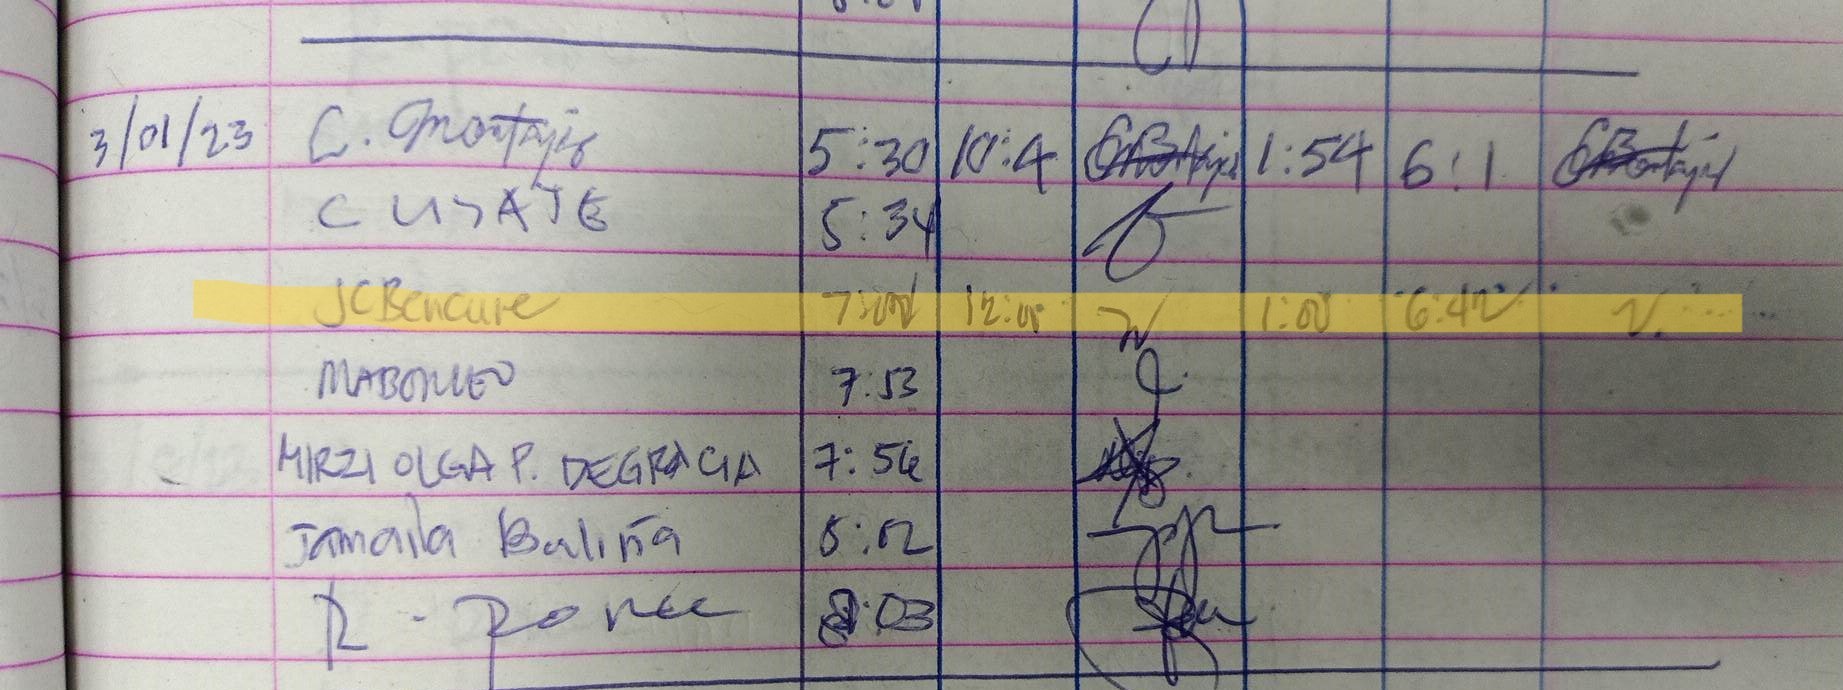 3/01/23 C. Montajis 5:30 10:4 1:54 6:1
CUSATE 5:34
JCBencure 7:00 12:00 1:00 6:42
7:53
MIRZI OLGA P. DEGRACIA 7:56
Jamaila Baliña 8:02
R. Ponce 8:03